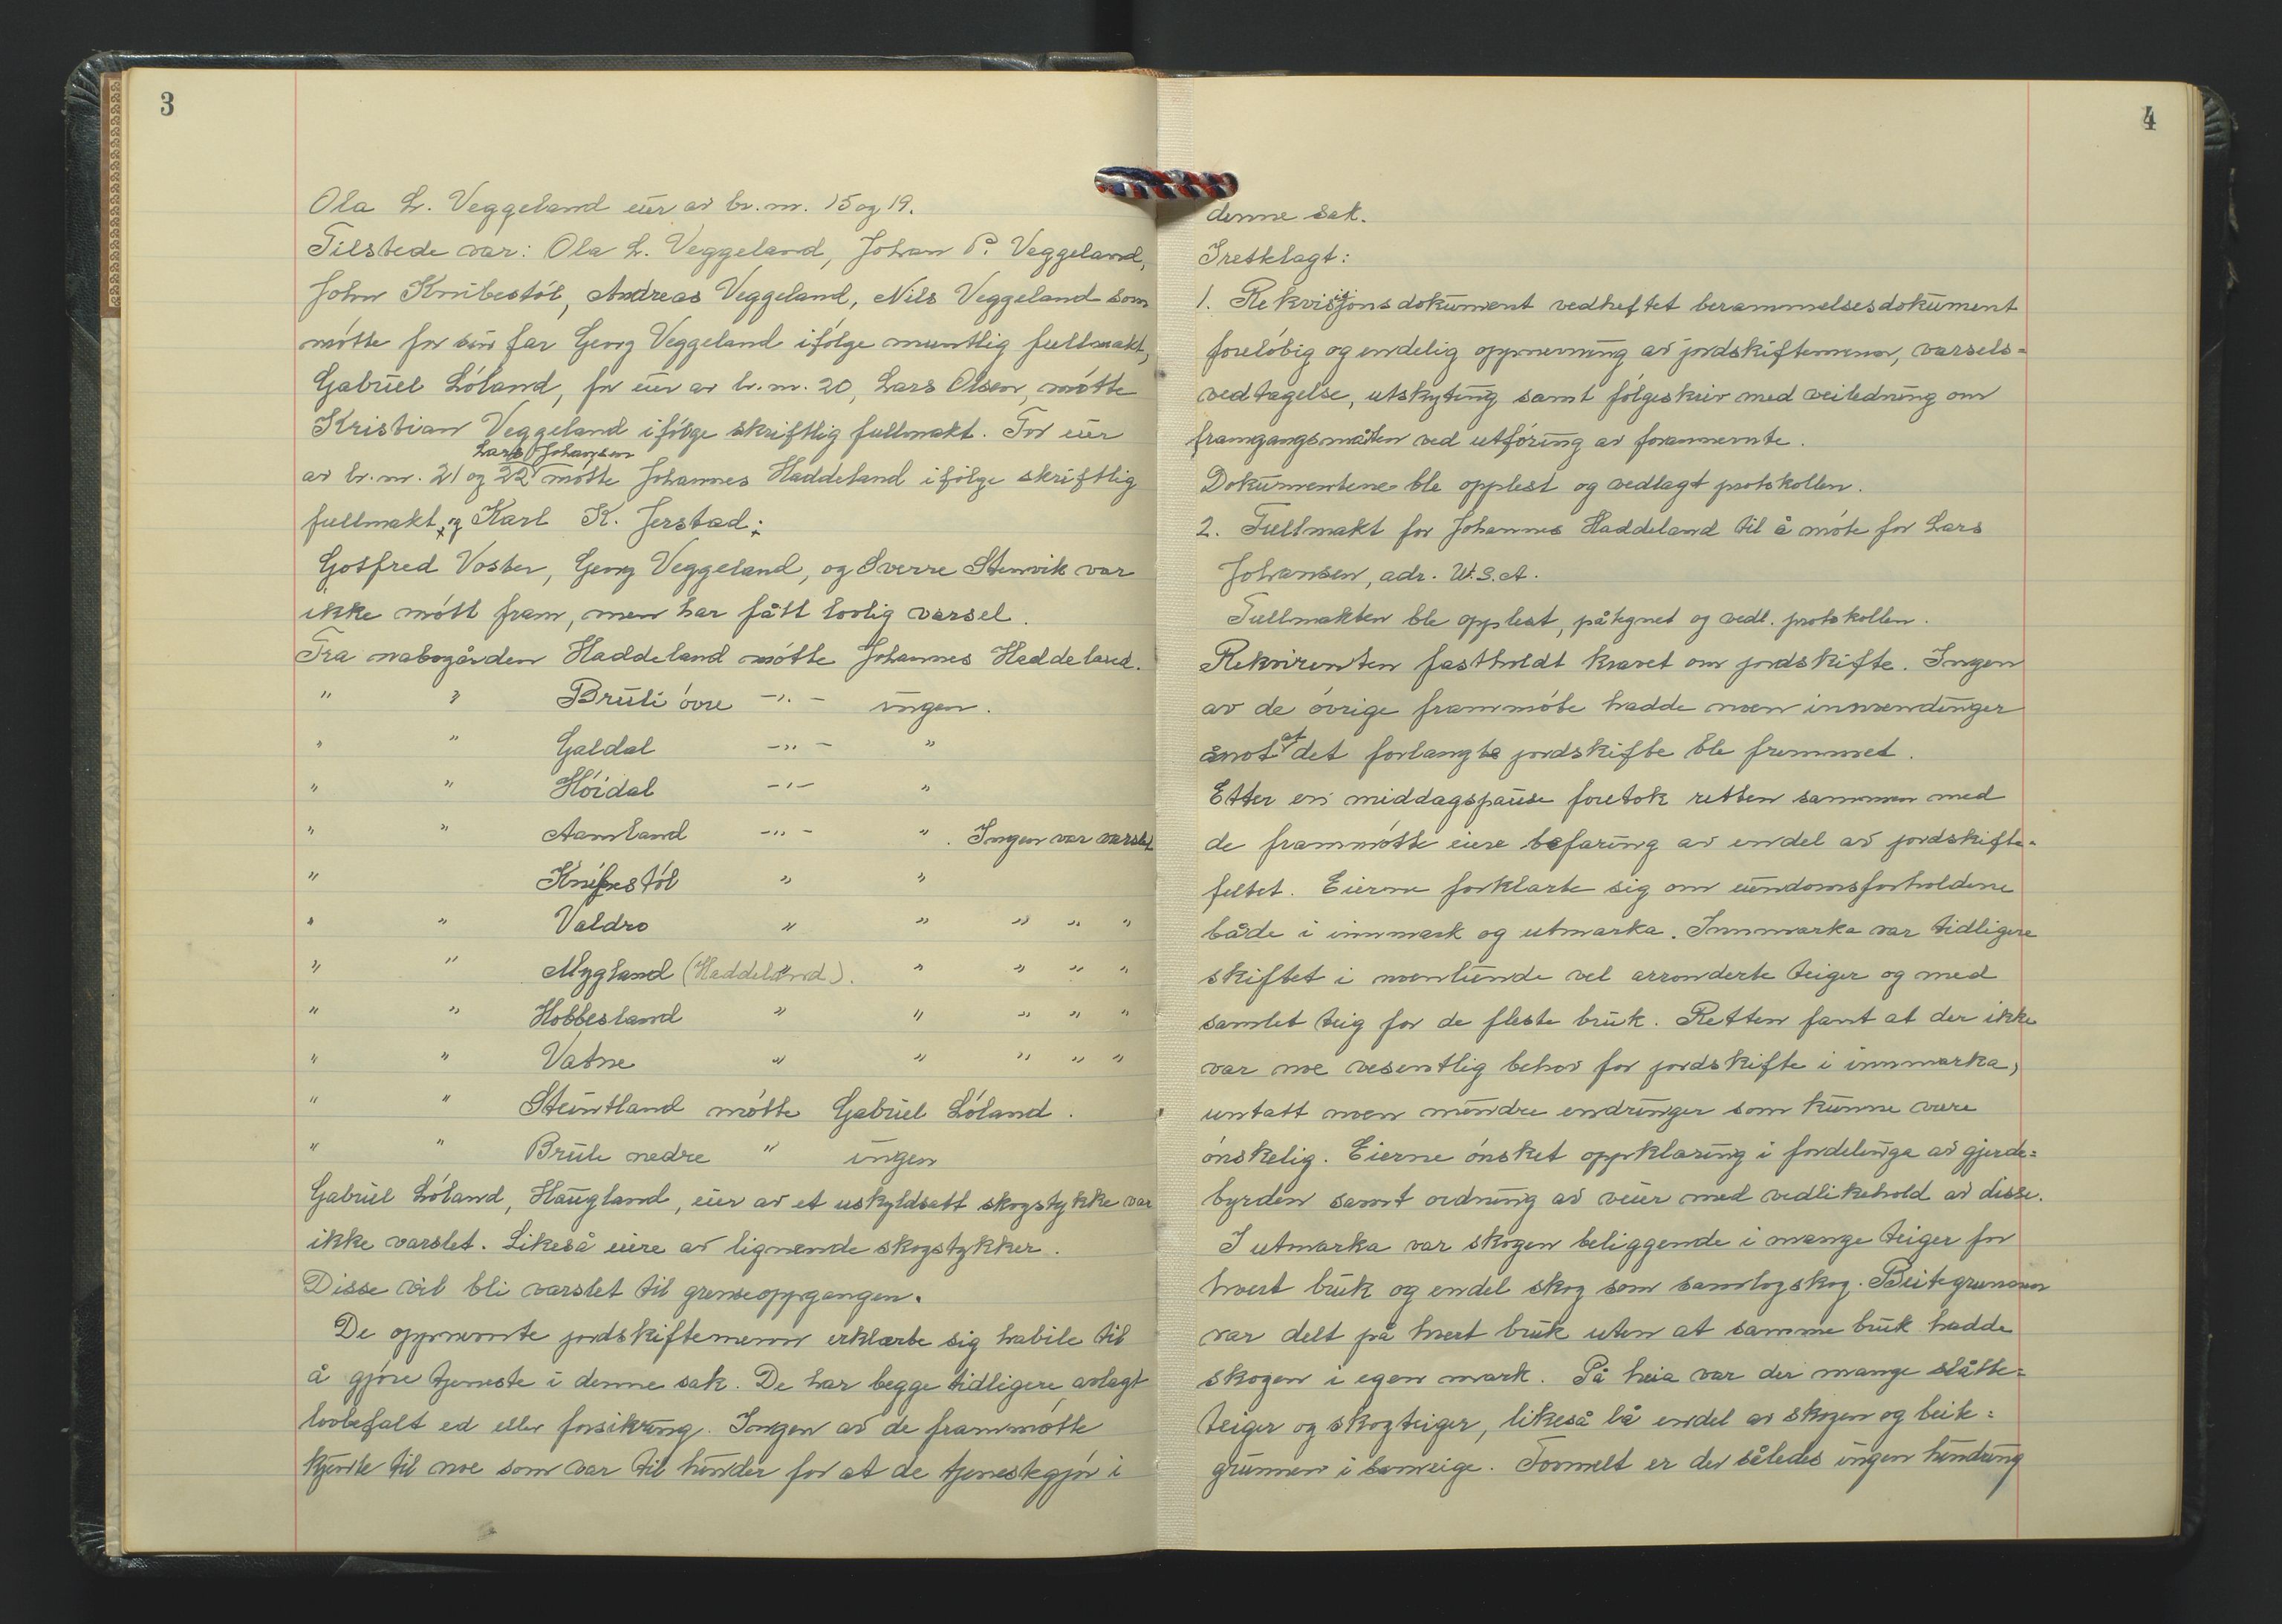 3
Ola L. Veggeland eier av br.nr. 15 og 19.
Tilstede var: Ola L. Veggeland, Johan P. Veggeland,
John Knibestöl, Andreas Veggeland, Nils Veggeland som
mötte for sin far Georg Veggeland ifölge muntlig fullmakt,
Gabriel Löland, for eier av br.nr. 20, Lars Olsen, mötte
Kristian Veggeland ifölge skriftlig fullmakt. For eier
Lars Johansen
av br.nr. 21 og 22 mötte Johannes Haddeland ifölge skriftlig
fullmakt, og Karl K. Jerstad.
Gotfred Voster, Georg Veggeland, og Sverre Stenvik var
ikke mött fram, men har fått lovlig varsel.
Fra nabogården Haddeland mötte Johannes Haddeland.
" " Bruli övre -"- ingen.
" " Galdal -"- "
" " Höidal -"- "
" " Aamland -"- " . Ingen var varslet
" Knibestöl " "
" " Valdro " " " " "
" " Mygland (Haddeland). " " " " "
" " Hobbesland " " " " "
" " Vatne " " " " "
" " Steintland mötte Gabriel Löland.
" " Brule nedre " ingen
Gabriel Löland, Haugland, eier av et uskyldsatt skogstykke var
ikke varslet. Likeså eiere av lignende skogstykker.
Disse vil bli varslet til grenseoppgangen.
De oppnevnte jordskiftemenn erklærte sig habile til
å gjöre tjeneste i denne sak. De har begge tidligere avlagt
lovbefalt ed eller forsikring. Ingen av de frammötte
kjente til noe som var til hinder for at de tjenestegjör i
4
denne sak.
Iretklagt:
1. Rekvisisjonsdokument vedheftet berammelsesdokument
forelöbig og endelig oppnevning av jordskiftemenn, varsels-
vedtagelse, utskyting samt fölgeskriv med veiledning om
framgangsmåten ved utföring av forannevnte.
Dokumentene ble opplest og vedlagt protokollen.
2. Fullmakt for Johannes Haddeland til å möte for Lars
Johansen, adr. U.S.A.
Fullmakten ble opplest, påtegnet og vedl. protokollen.
Rekvirenten fastholdt kravet om jordskifte. Ingen
av de övrige frammöte hadde noen innvendinger
imot at det forlangte jordskifte ble fremmet.
Etter en middagspause foretok retten sammen med
de frammötte eiere befaring av endel av jordskifte-
feltet. Eierne forklarte sig om eiendomsforholdene
både i innmark og utmarka. Innmarka var tidligere
skiftet i noenlunde vel arronderte teiger og med
samlet teig for de fleste bruk. Retten fant at der ikke
var noe vesentlig behov for jordskifte i innmarka,
untatt noen mindre endringer som kunne være
önskelig. Eierne önsket oppklaring i fordelinga av gjerde-
byrden samt ordning av veier med vedlikehold av disse.
I utmarka var skogen beliggende i mange teiger for
hvert bruk og endel skog som samlogskog. Beitegrunnen
var delt på hvert bruk uten at samme bruk hadde
skogen i egen mark. På heia var der mange slåtte-
teiger og skogteiger, likeså lå endel av skogen og beite-
grunnen i sameige. Formelt er der således ingen hindring